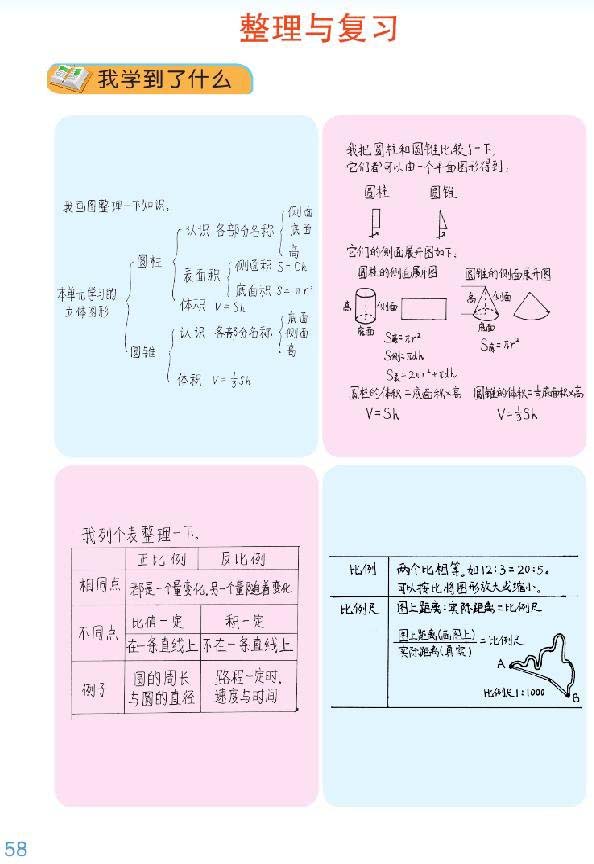 整理与复习
我学到了什么
我画图整理一下知识。
本单元学习的
立体图形
圆柱
认识 各部分名称
侧面
底面
高
表面积
侧面积 S=Ch
底面积 S=πr²
体积 V=Sh
圆锥
认识 各部分名称
底面
侧面
高
体积 V=⅓Sh
我把圆柱和圆锥比较了一下,
它们都可以由一个平面图形得到。
圆柱 圆锥
它们的侧面展开图如下。
圆柱的侧面展开图 圆锥的侧面展开图
高 侧面
底面
高 侧面
底面
S底=πr²
S侧=πdh
S表=2πr²+πdh
S底=πr²
圆柱的体积=底面积×高 圆锥的体积=⅓底面积×高
V=Sh V=⅓Sh
我列个表整理一下。
正比例 反比例
相同点 都是一个量变化,另一个量随着变化
不同点 比值一定 积一定
在一条直线上 不在一条直线上
例子 圆的周长 路程一定时,
与圆的直径 速度与时间
比例 两个比相等。如12:3=20:5。
可以按比将图形放大或缩小。
比例尺 图上距离:实际距离=比例尺
图上距离(画图上)
实际距离(真实)
=比例尺
A
B
比例尺1:1000
58